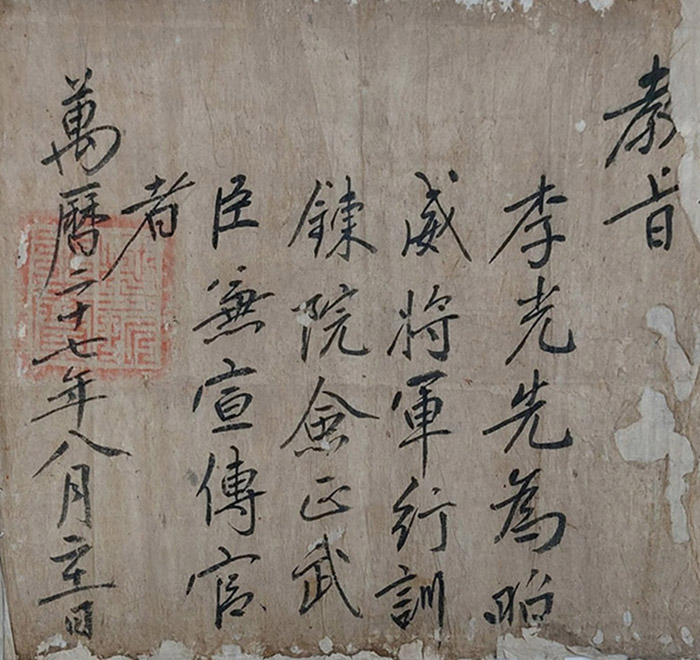 教旨
李光先為昭
威將軍行訓
鍊院僉正武
臣兼宣傳官
者
萬曆二十七年八月二十二日